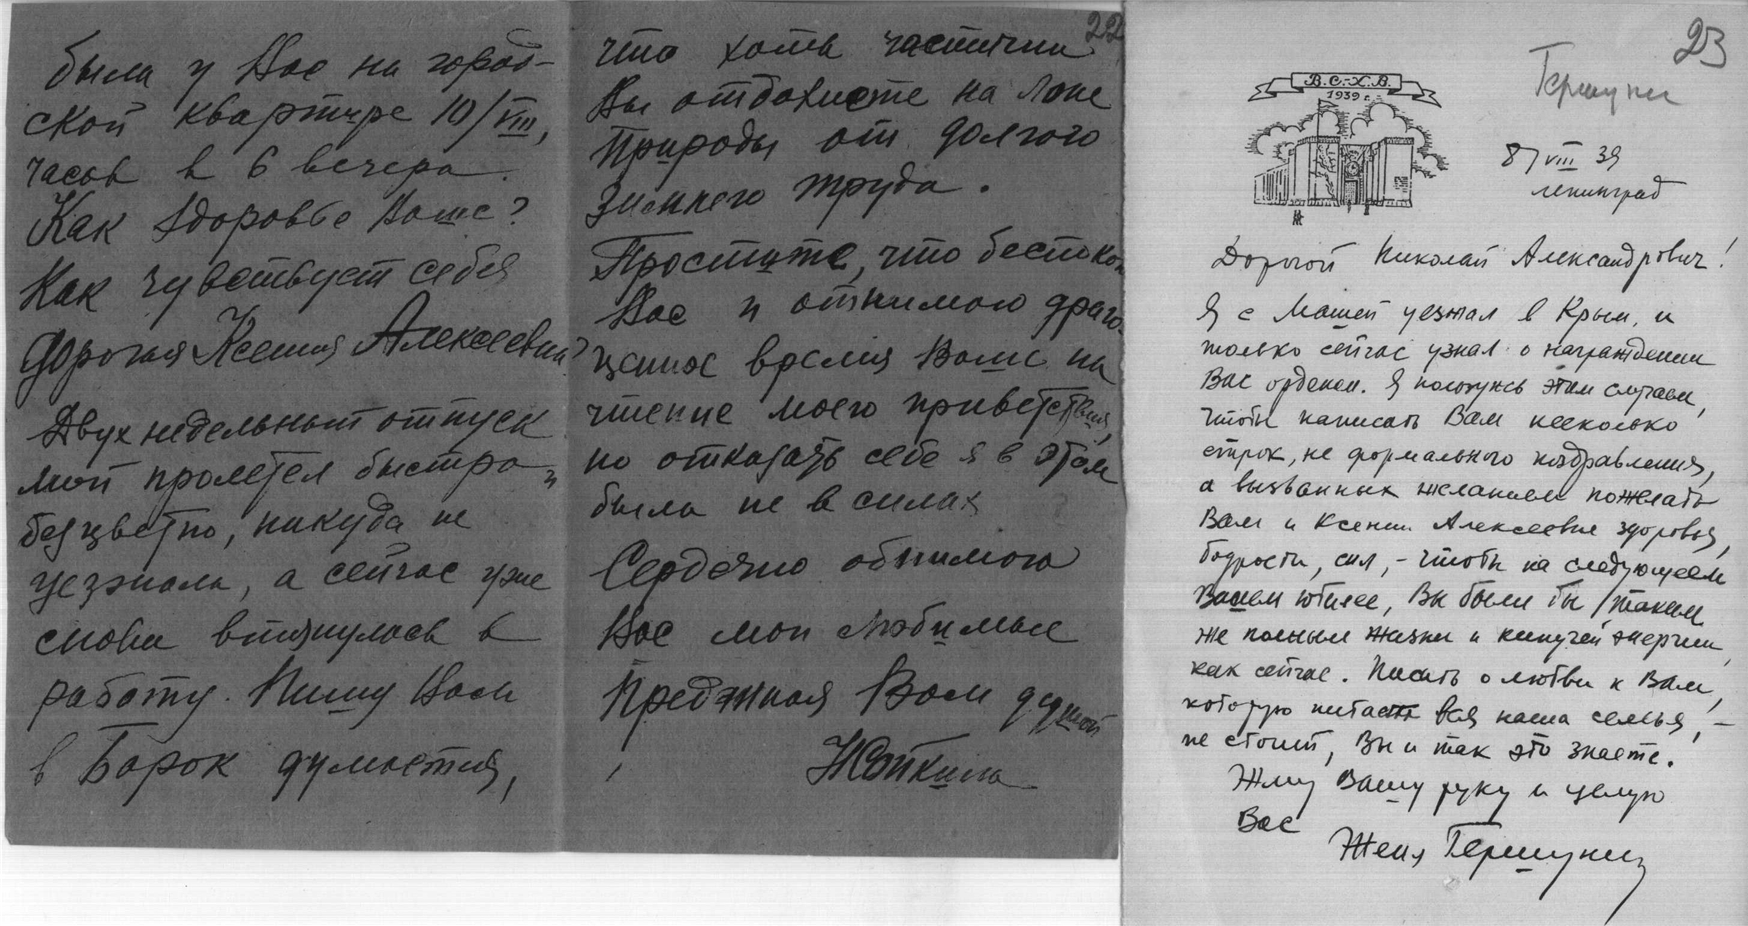 была у Вас на город-
ской квартире 10/VIII,
часов в 6 вечера.
Как здоровье Ваше?
Как чувствует себя
дорогая Ксения Алексеевна?
Двух недельный отпуск
мой пролетел быстро и
безцветно, никуда не
уезжала, а сейчас уже
снова втянулась в
работу. Пишу Вам
в Борок думается,
22
что хоть частично
Вы отдохнете на лоне
природы от долгого
зимнего труда.
Простите, что беспокою
Вас и отнимаю драго-
ценное время Ваше на
чтение моего приветствия,
но отказать себе я в этом
была не в силах
Сердечно обнимаю
Вас мои любимые
Преданная Вам душой
23
Гершуни
В.С.-Х.В.
1939 г.
8/VIII 39
Ленинград
Дорогой Николай Александрович!
Я с Машей уезжал в Крым, и
только сейчас узнал о награждении
Вас орденом. Я пользуюсь этим случаем,
чтобы написать Вам несколько
строк, не формального поздравления,
а вызванных желанием пожелать
Вам и Ксении Алексеевне здоровья,
бодрости, сил, – чтобы на следующем
Вашем юбилее, Вы были бы таким
же полным жизни и кипучей энергии,
как сейчас. Писать о любви к Вам,
которую питает вся наша семья, –
не стоит, Вы и так это знаете.
Жму Вашу руку и целую
Вас
Женя Гершуни